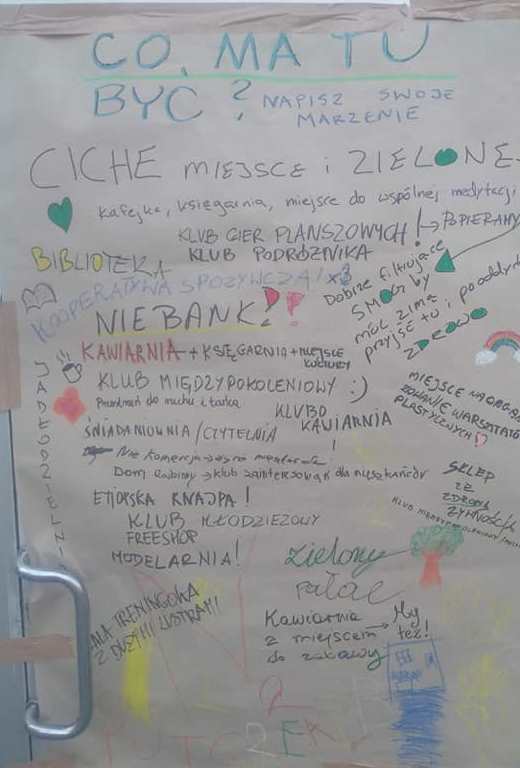 CO MA TU
BYĆ?
NAPISZ SWOJE
MARZENIE
CICHE MIEJSCE i ZIELONE
kafejka, księgarnia, miejsce do wspólnej medytacji
KLUB GIER PLANSZOWYCH! → POPIERAMY
BIBLIOTEKA
KLUB PODRÓŻNIKA
KOOPERATYWA SPOŻYWCZA! x3
Dobrze filtrujące
SMOG by
móc zimą
przyjść tu i
ZDROWO
NIE BANK?!
KAWIARNIA + KSIĘGARNIA + MIEJSCE
KULTURY
JADŁODZIELNI
KLUB MIĘDZYPOKOLENIOWY :)
do ruchu i tańca
KLUBO
KAWIARNIA
!
MIEJSCE NA
WARSZTATÓW
PLASTYCZNYCH!?
ŚNIADANIOWNIA / CZYTELNIA
Nie komercja
Dom → klub zainteresowań dla
SKLEP
ZE
ZDROWĄ
ŻYWNOŚCIĄ
ETIOPSKA KNAJPA!
KLUB MŁODZIEŻOWY
FREESHOP
MODELARNIA!
zielony
pałac
SALA TRENINGOWA
Z DUŻYMI LUSTRAMI
Kawiarnia
z miejscem → My
do zabawy też!